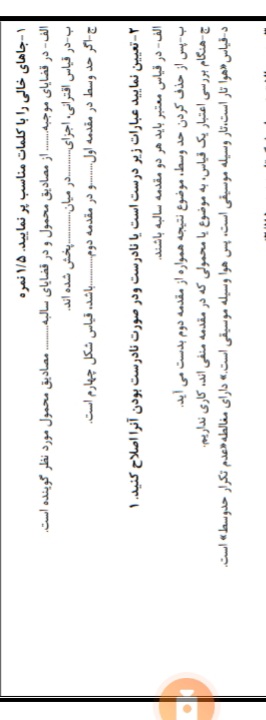 ۱-جاهای خالی را با کلمات مناسب پر نمایید. ۱/۵ نمره
الف- در قضایای موجبه........... از مصادیق محمول و در قضایای سالبه........... مصادیق محمول مورد نظر گوینده است.
ب-در قیاس اقترانی، اجزای...........در میان...........پخش شده اند.
ج-اگر حد وسط در مقدمه اول...........و در مقدمه دوم...........باشد، قیاس شکل چهارم است.
۲-تعیین نمایید عبارات زیر درست است یا نادرست ودر صورت نادرست بودن آنرا اصلاح کنید. ۱
الف- در قیاس معتبر باید هر دو مقدمه سالبه باشند.
ب-پس از حذف کردن حد وسط، موضوع نتیجه همواره از مقدمه دوم بدست می آید.
ج-هنگام بررسی اعتبار یک قیاس، به موضوع یا محمولی که در مقدمه منفی اند، کاری نداریم.
د-قیاس «هوا تار است،تار وسیله موسیقی است، پس هوا وسیله موسیقی است.» دارای مغالطه«عدم تکرار حدوسط» است.